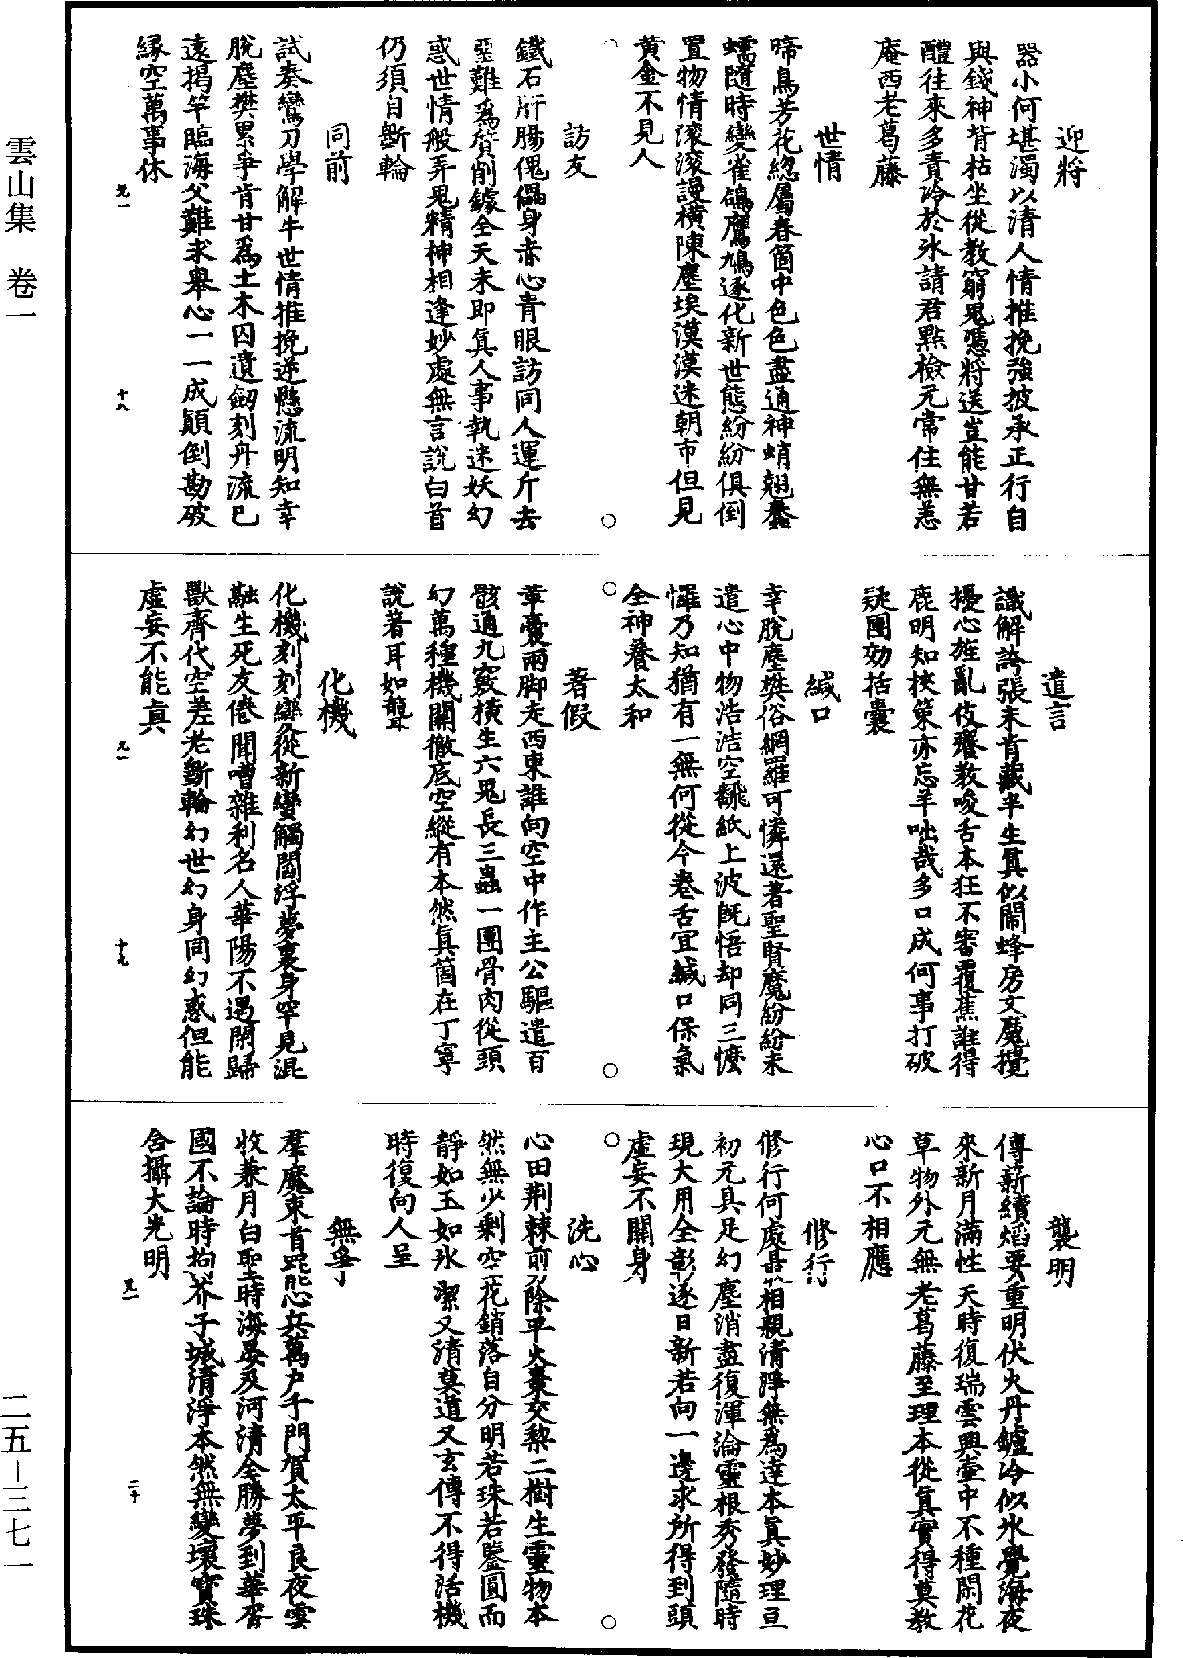 迎將
器小何堪濁以清人情推挽強披承正行自
與錢神背枯坐從教窮鬼憑將送豈能甘若
醴往來多責冷於氷請君點檢元常住無恙
庵西老葛藤
世情
啼鳥芳花緫屬春箇中色色盡通神蛸翹蠢
蠕隨時變雀鴿鷹鳩逐化新世態紛紛俱倒
置物情滚滚謾橫陳塵埃漠漠迷朝市但見
黄金不見人
訪友
鐵石肝腸傀儡身赤心青眼訪同人運斤去
堊難爲質削鐻全天未即眞人事執迷妖幻
惑世情般弄鬼精神相逢妙處無言說白首
仍須自斲輪
同前
試奏鸞刀學解牛世情推挽逆懸流明知幸
脫塵樊累爭肯甘爲土木囚遺劒刻舟流已
遠揭竿臨海父難求舉心一一成顛倒勘破
縁空萬事休
兄一
十八
遣言
識解誇張未肯藏半生眞似鬧蜂房文魔攪
擾心旌亂伎癢教唆舌本狂不審覆蕉誰得
鹿明知挾策亦忘羊咄哉多口成何事打破
疑團効括囊
緘口
幸脫塵樊俗網羅可憐還著聖賢魔紛紛未
遣心中物浩浩空飜紙上波既悟却同三懡
㦬乃知猶有一無何從今卷舌宜緘口保氣
全神養太和
著假
革囊兩脚走西東誰向空中作主公驅遣百
骸通九竅橫生六鬼長三蟲一團骨肉從頭
幻萬種機關徹底空縱有本然眞箇在丁寧
說著耳如聾
化機
化機刻刻變從新蠻觸閻浮夢裏身罕見混
融生死友倦聞嘈雜利名人華陽不遇閑歸
獸齊代空差老斲輪幻世幻身同幻惑但能
虛妄不能眞
兄一
十九
襲明
傳薪續焰要重明伏火丹鑪冷似氷覺海夜
來新月滿性天時復瑞雲興壷中不種閑花
草物外元無老葛藤至理本從眞實得莫教
心口不相應
修行
修行何處是相親清淨無爲達本眞妙理亘
初元具足幻塵消盡復渾淪靈根秀發隨時
現大用全彰逐日新若向一邊求所得到頭
虛妄不關身
洗心
心田荆棘前除平火棗交梨二樹生靈物本
然無少剩空花銷落自分明若珠若鑒圓而
靜如玉如氷潔又清莫道又玄傳不得活機
時復向人呈
無爭
羣魔東首罷心兵萬户千門賀太平良夜雲
收兼月白聖時海晏及河清全勝夢到華胥
國不論時拘芥子城清淨本然無變壞寶珠
含攝大光明
兄一
二十
雲山集　卷一
二五—三七一